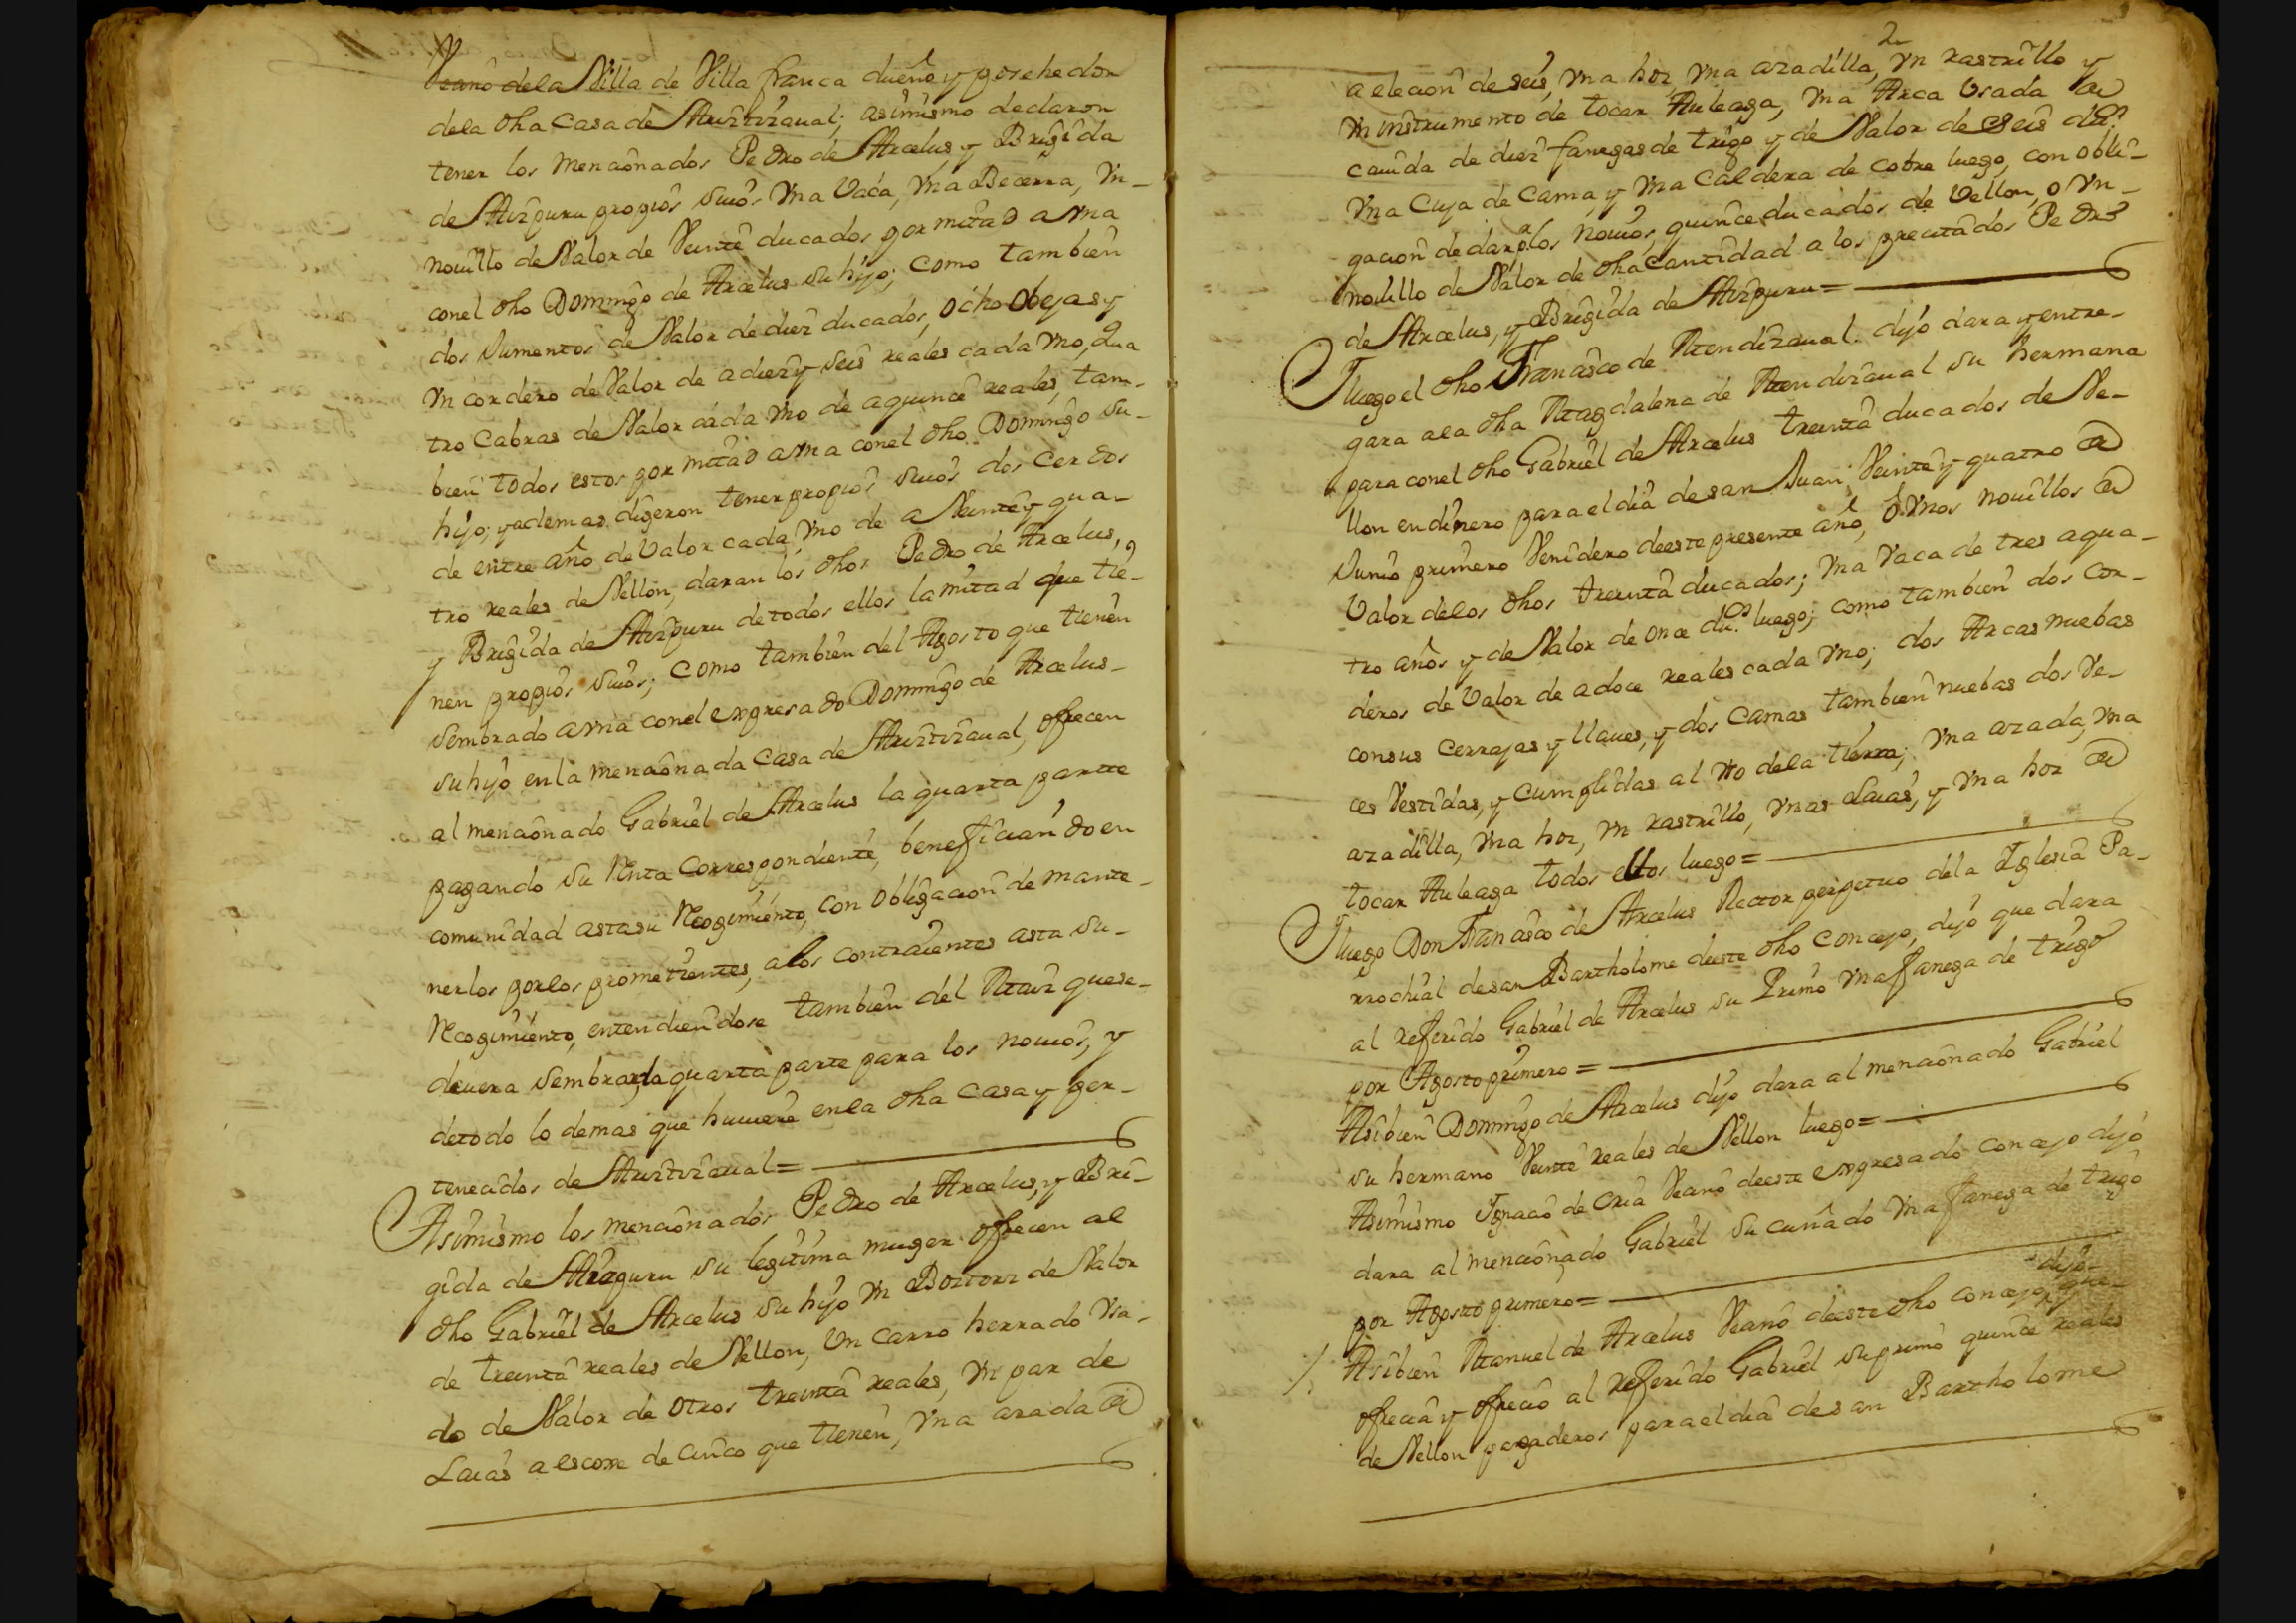 Vecino dela Villa de Villa franca dueño y posehedor
dela dha Casa de Aurtizaual; asimismo declaron
tener los mencionados Pedro de Arcelus, y Brigida
de Aizpuru propios suios Vna Vaca, Vna Becerra, Vn
nouillo de Valor de Veinte ducados por mitad a Vna
conel dho Domingo de Arcelus su hijo; como tambien
dos Jumentos de Valor de diez ducados, ocho obejas y
Vn cordero de Valor de a diez y seis reales cada Vno, qua
tro Cabras de Valor cada Vno de a quince reales, tam-
bien todos estos por mitad a Vna conel dho Domingo su-
hijo; y ademas digeron tener propios suios dos Cerdos
de entre año de Valor cada Vno de a Veinte y qua-
tro reales de Vellon, daran los dhos Pedro de Arcelus,
y Brigida de Aizpuru de todos ellos la mitad que tie-
nen propios suios; como tambien del Agosto que tienen
sembrado a Vna conel expresado Domingo de Arcelus-
su hijo en la mencionada Casa de Aurtizaual, ofrecen
al mencionado Gabriel de Arcelus la quarta partte
pagando su Renta Correspondiente, beneficiando en
comunidad asta su Recogimiento, con obligacion de mante-
nerlos por los prometientes, a los contraientes asta su-
Recogimiento, entendiendose tambien del Maiz que se-
deuera sembrar la quarta parte para los nouios, y
de todo lo demas que huuiere enla dha casa y per-
tenecidos de Aurtizaual=
Asimismo los mencionados Pedro de Arcelus, y Bri-
gida de Aizpuru su legitima muger ofrecen al
dho Gabriel de Arcelus su hijo Vn Bostorz de Valor
de treinta reales de Vellon, Vn carro herrado Vsa-
do de Valor de otros treinta reales, Vn par de
Laias a escoxe de cinco que tienen, Vna azada a
2
a elecion de seis, Vna hoz, Vna azadilla, Vn rastrillo y
Vn instrumento de tocar Auleaga, Vna Arca Vsada
cauida de diez fanegas de trigo y de Valor de seis dus.
Vna Cuja de Cama, y Vna Caldera de cobre luego, con obli-
gacion de dar los nouios, quince ducados de Vellon, o Vn-
nouillo de Valor de dha Cantidad a los precitados Pedro
de Arcelus, y Brigida de Aizpuru=
I luego el dho Francisco de Mendizaual dijo dara y entre-
gara a la dha Magdalena de Mendizaual su hermana
para conel dho Gabriel de Arcelus treinta ducados de Ve-
llon en dinero para el dia de san Juan Veinte y quatro
Junio primero Venidero deeste presente año, o Vnos nouillos
Valor delos dhos treinta ducados; Vna Vaca de tres a qua-
tro años y de Valor de once dus. luego; como tambien dos cor-
deros de Valor de a doce reales cada Vno; dos Arcas nuebas
consus cerrajas y llaues, y dos Camas tambien nuebas dos Ve-
ces Vestidas, y Cumplidas al Vso dela tierra; Vna azada, Vna
azadilla, Vna hoz, Vn rastrillo, Vnas Laias, y Vna hoz
tocar Auleaga todos ellos luego=
I luego Don Francisco de Arcelus Rector perpetuo dela Iglesia Pa-
rrochial de san Bartholome deeste dho concejo, dijo que dara
al referido Gabriel de Arcelus su Primo Vna fanega de trigo
por Agosto primero=
Asibien Domingo de Arcelus dijo dara al mencionado Gabriel
su hermano Veinte reales de Vellon luego=
Asimismo Ignacio de Oria Vecino deeste expresado concejo dijo
dara al mencionado Gabriel su cuñado Vna fanega de trigo
por Agosto primero=
Asibien Manuel de Arcelus Vecino deeste dho concejo, dijo que-
ofrecia y ofrecio al referido Gabriel su primo quince reales
de Vellon pagaderos para el dia de san Bartholome